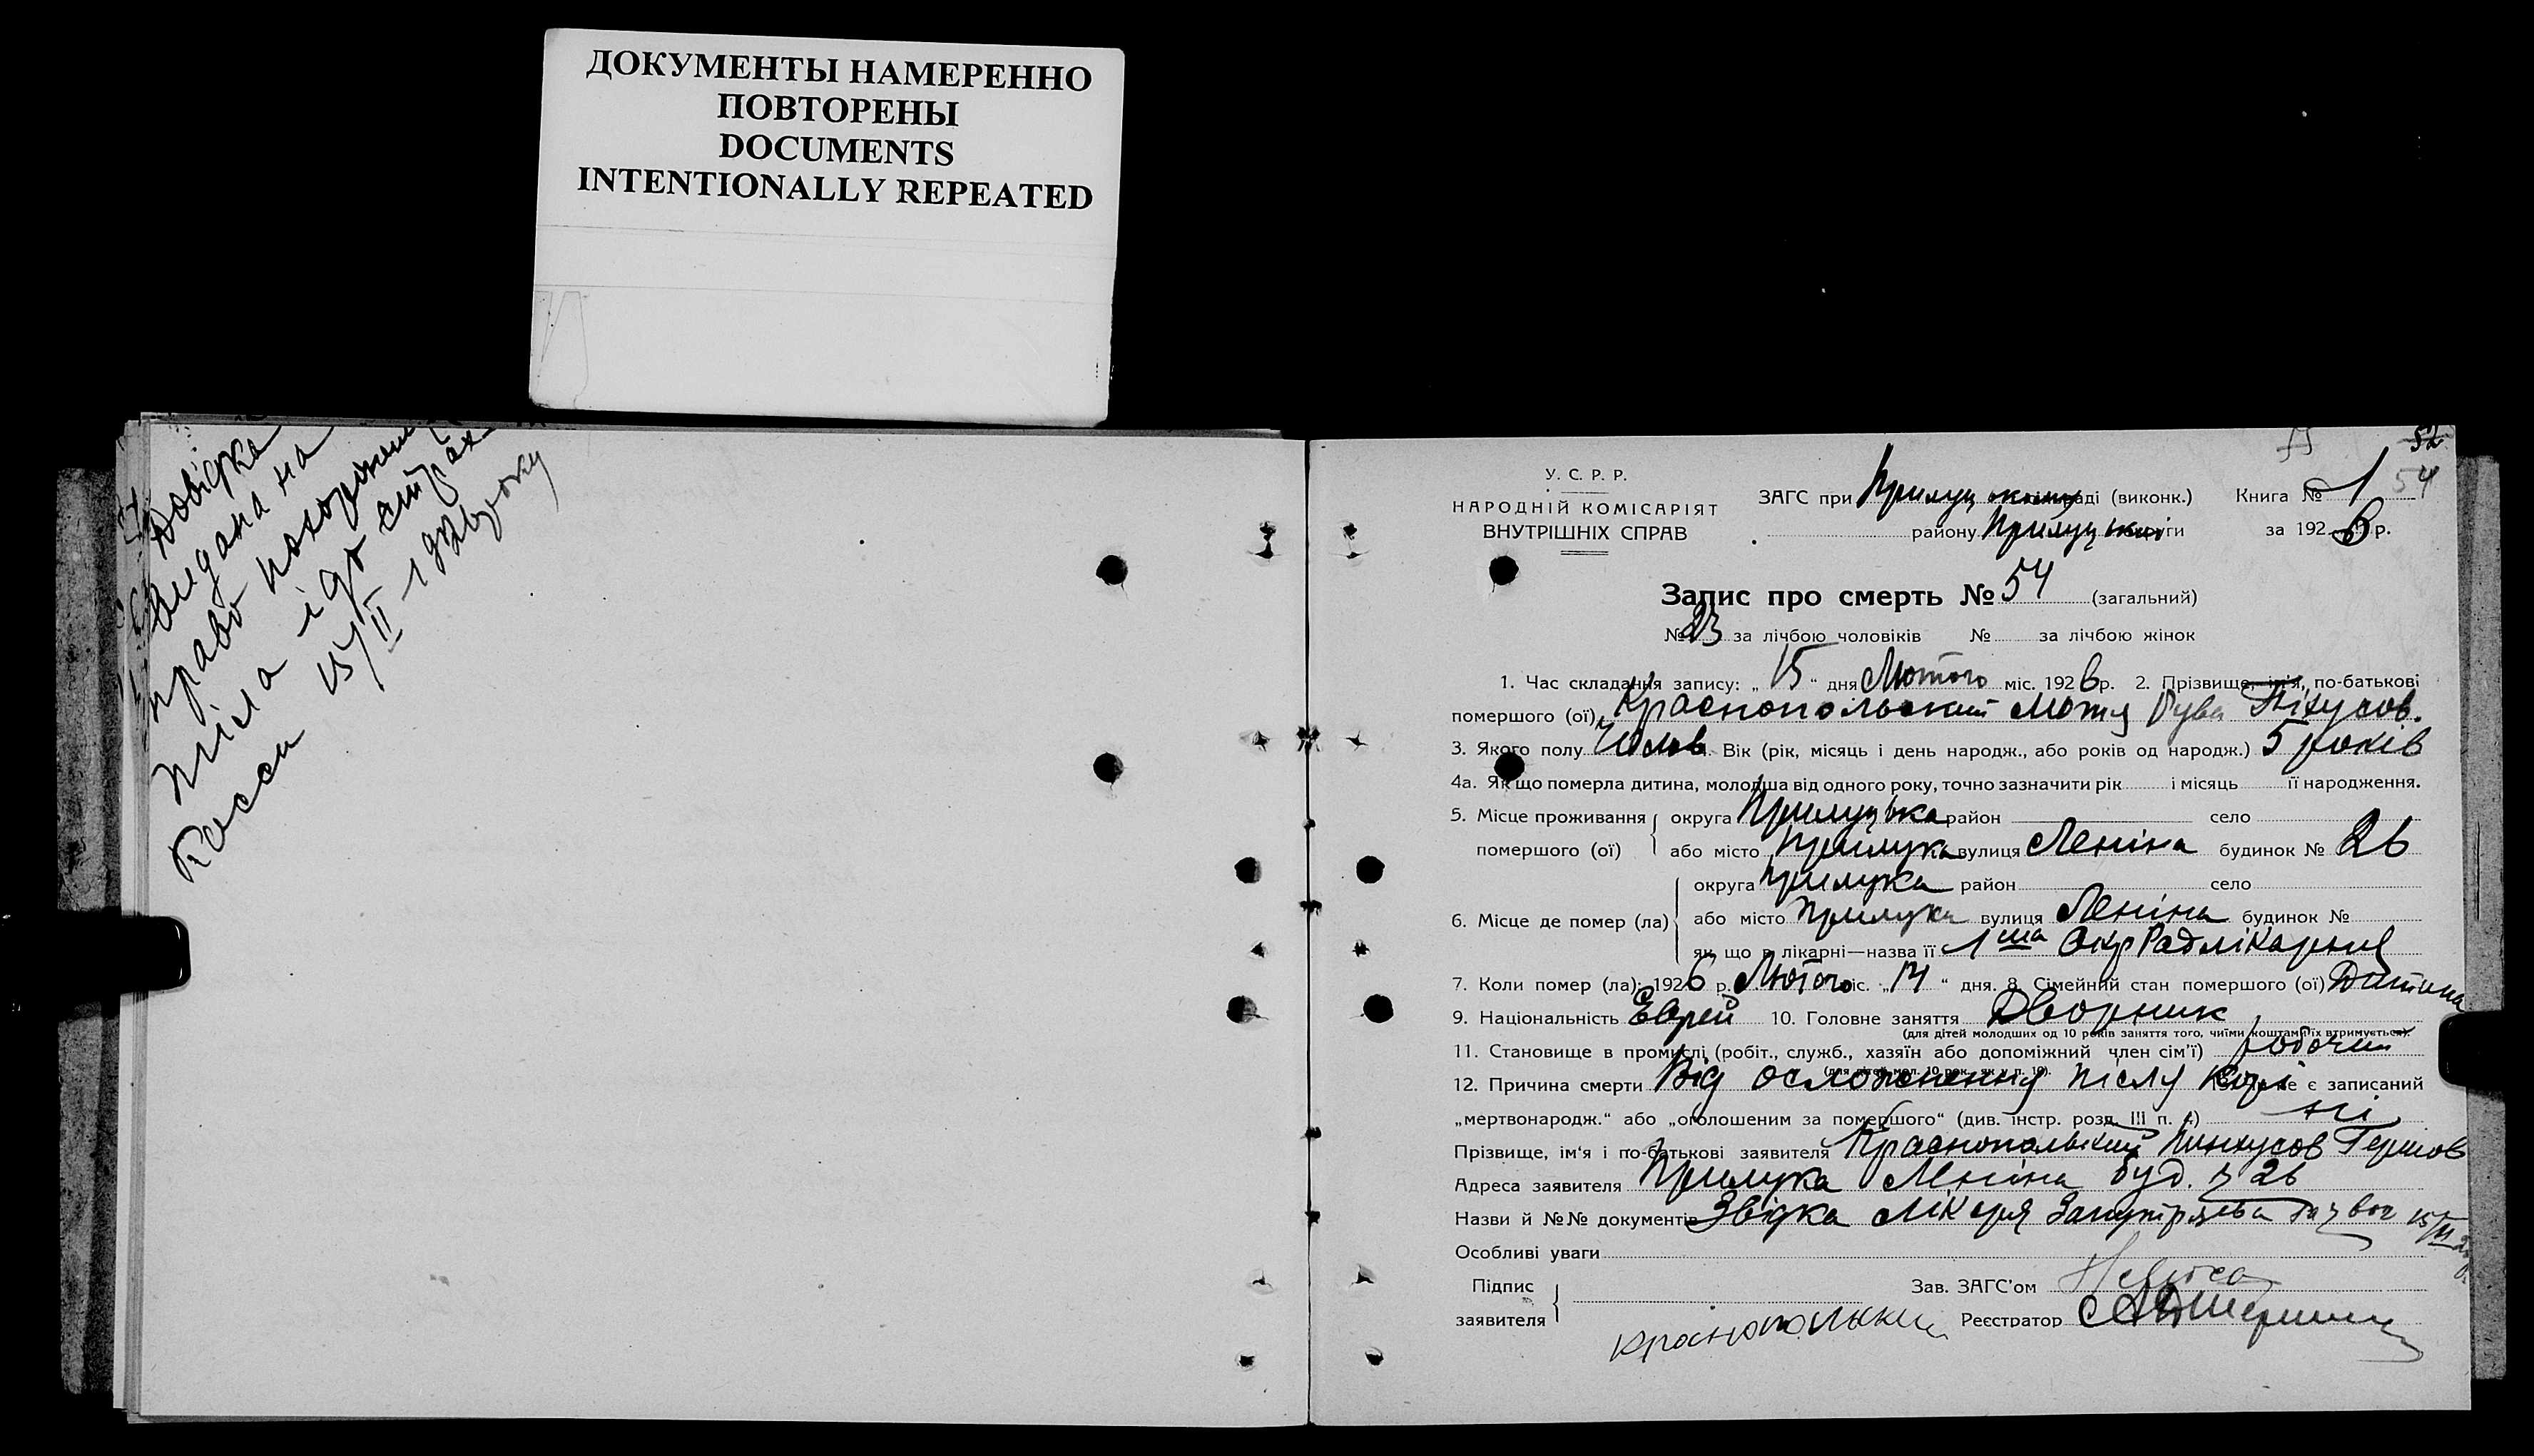 ДОКУМЕНТЫ НАМЕРЕННО
ПОВТОРЕНЫ
DOCUMENTS
INTENTIONALLY REPEATED
Довідка
видана на
право похорон
тіла і до страх
касси 15/II
52
54
У. С. Р. Р.
НАРОДНІЙ КОМІСАРІЯТ
ВНУТРІШНІХ СПРАВ
ЗАГС при Прилуц раді (виконк.) Книга № 1
району Прилуцької округи за 1926 р.
Запис про смерть № 54 (загальний)
№ 23 за лічбою чоловіків № за лічбою жінок
1. Час складання запису: „ 15 “ дня Лютого міс. 1926 р. 2. Прізвище, ім'я, по-батькові
помершого (ої) Краснопольский Мотя
3. Якого полу Чолов 4. Вік (рік, місяць і день народж., або років од народж.) 5 років
4а. Як що померла дитина, молодша від одного року, точно зазначити рік і місяць її народження.
5. Місце проживання помершого (ої) округа Прилуцька район село
або місто Прилука вулиця Леніна будинок № 26
6. Місце де помер (ла) округа Прилука район село
або місто Прилука вулиця Леніна будинок №
як що в лікарні—назва її 1ша Окр Радлікарня
7. Коли помер (ла): 1926 р. Лютого міс. „ 14 “ дня. 8. Сімейний стан помершого (ої) Дитина
9. Національність Єврей 10. Головне заняття Дворник
(для дітей молодших од 10 років заняття того, чиїми коштами їх втримується).
11. Становище в промислі (робіт., служб., хазяїн або допоміжний член сім'ї) робочий
(для дітей мол. 10 рок. як у п. 10).
12. Причина смерти Від осложнення після Корі 13. Чи не є записаний
„мертвонародж.“ або „оголошеним за помершого“ (див. інстр. розд. III п. 4) ні
Прізвище, ім'я і по-батькові заявителя Краснопольский Пинхусов Гершов
Адреса заявителя Прилука Леніна буд. № 26
Назви й №№ документів Звідка лікаря 15/II 26
Особливі уваги
Підпис заявителя Краснопольский
Зав. ЗАГС'ом
Реєстратор